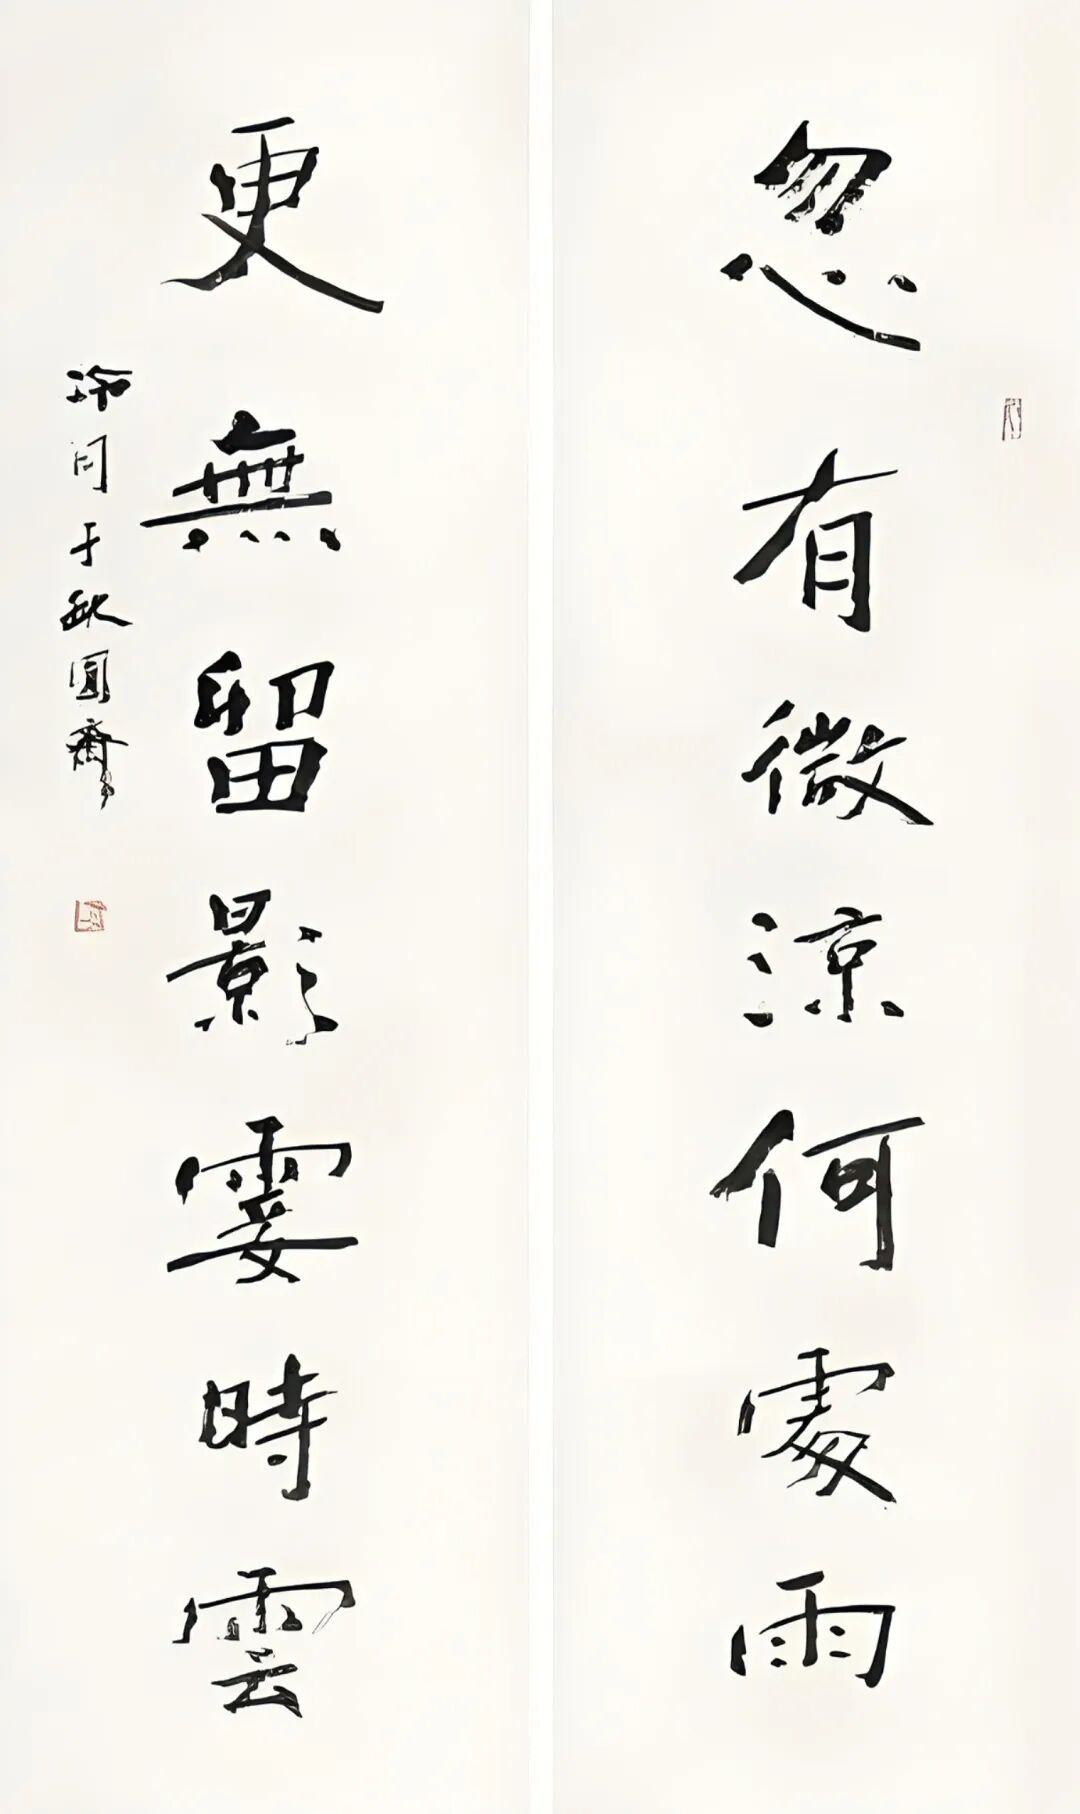 忽有微涼何處雨
更無留影霎時雲
沛同于秋圓齋